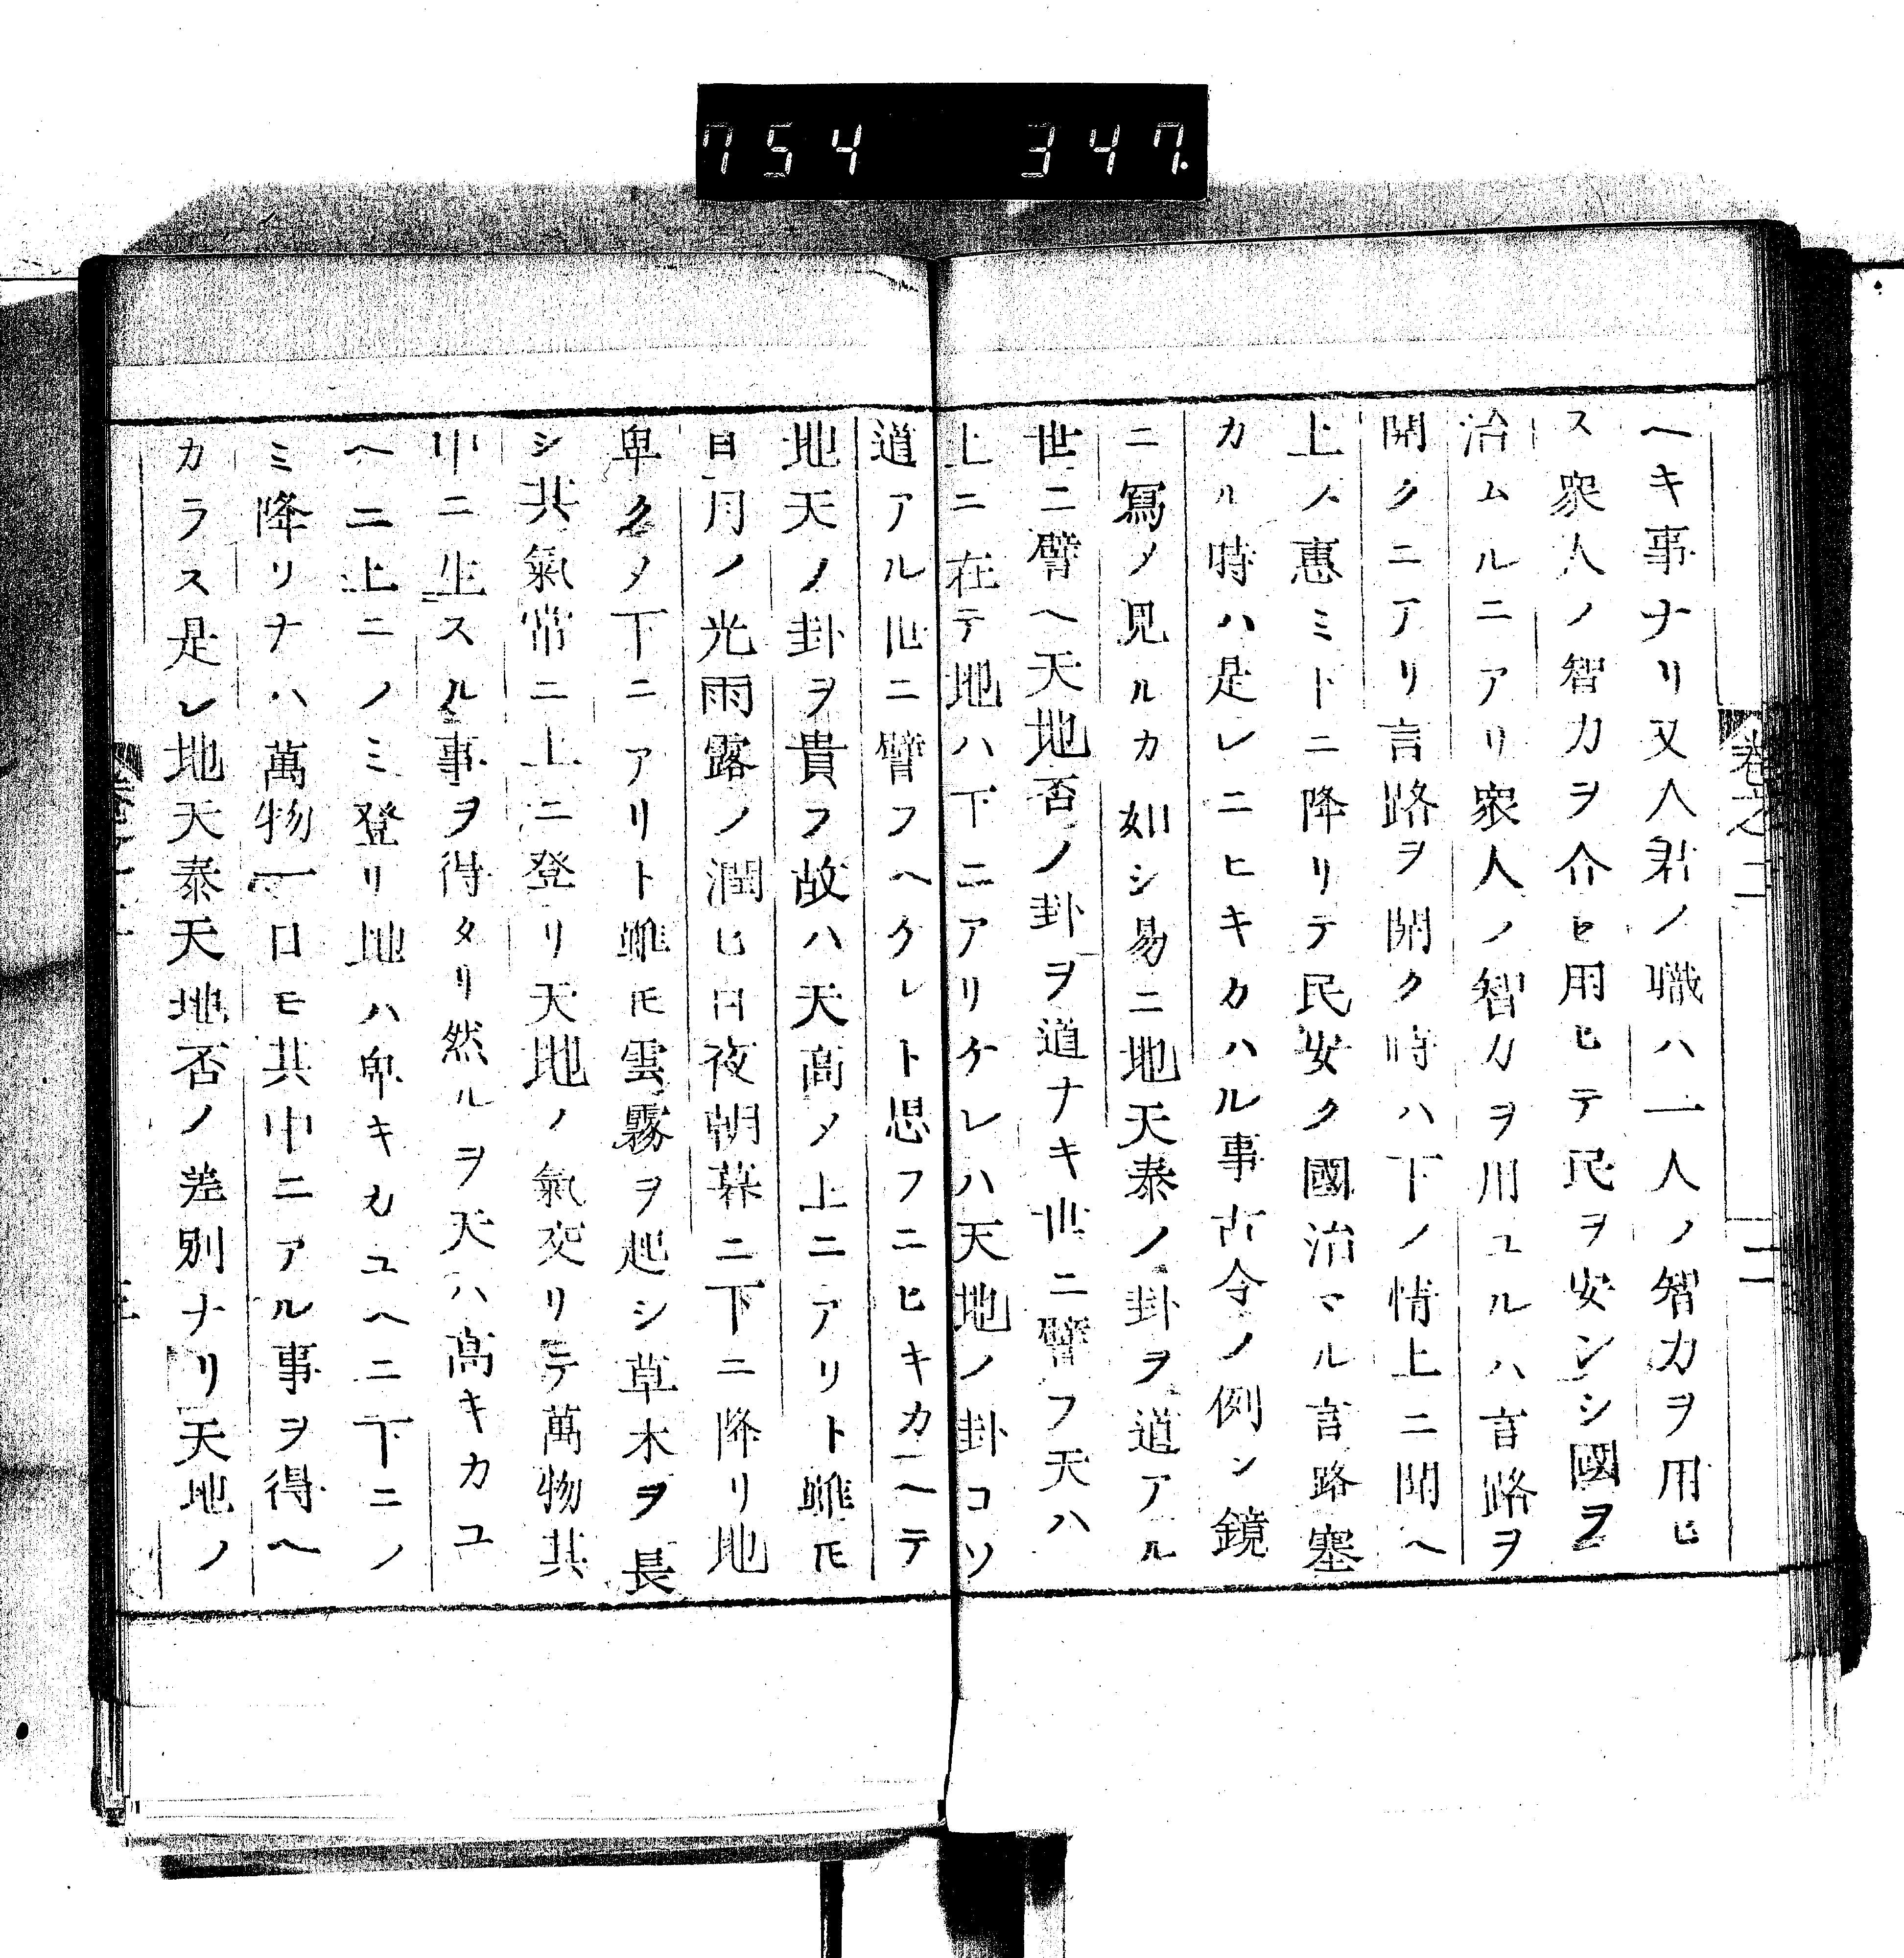 754 347
卷之二
二
ヘキ事ナリ又人君ノ職ハ一人ノ智力ヲ用ヒ
ス衆人ノ智力ヲ介セ用ヒテ民ヲ安ンシ國ヲ
治ムルニアリ衆人ノ智力ヲ用ユルハ言路ヲ
開クニアリ言路ヲ開ク時ハ下ノ情上ニ聞ヘ
上ノ惠ミ下ニ降リテ民安ク國治マル言路塞
カル時ハ是レニヒキカハル事古今ノ例シ鏡
ニ寫メ見ルカ如シ易ニ地天泰ノ卦ヲ道アル
世ニ譬ヘ天地否ノ卦ヲ道ナキ世ニ譬フ天ハ
上ニ在テ地ハ下ニアリケレハ天地ノ卦コソ
道アル世ニ譬フヘケレト思フニヒキカヘテ
地天ノ卦ヲ貴フ故ハ天高メ上ニアリト雖𪜈
日月ノ光雨露ノ潤ヒ日夜朝暮ニ下ニ降リ地
卑クメ下ニアリト雖𪜈雲霧ヲ起シ草木ヲ長
シ其氣常ニ上ニ登リ天地ノ氣交リテ萬物其
中ニ生スル事ヲ得タリ然ルヲ天ハ高キカユ
ヘニ上ニノミ登リ地ハ卑キカユヘニ下ニノ
ミ降リナハ萬物一日モ其中ニアル事ヲ得ヘ
カラス是レ地天泰天地否ノ差別ナリ天地ノ